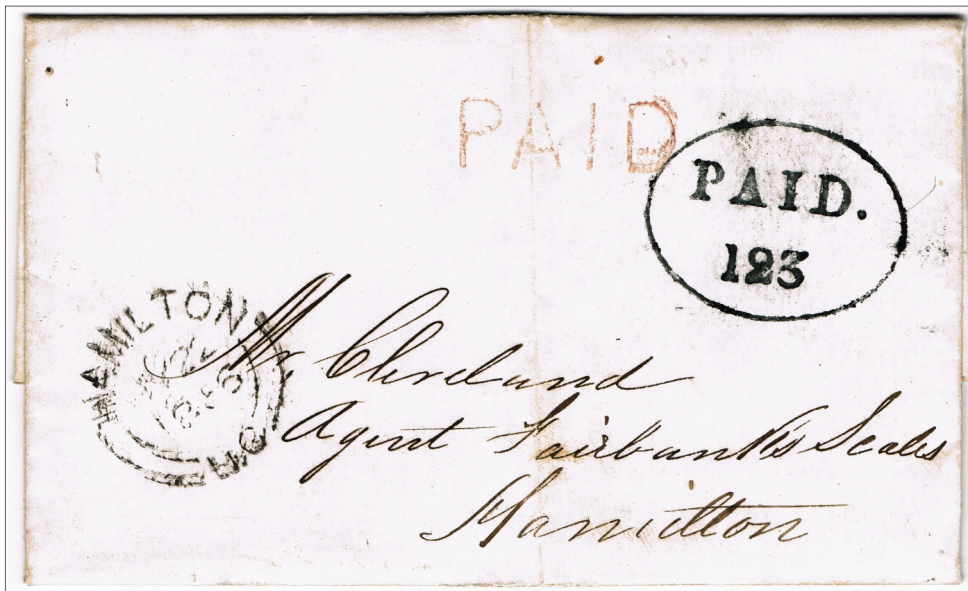 PAID
PAID.
123
HAMILTON
U.C.
Mr. Cleveland
Agent Fairbanks Scales
Hamilton